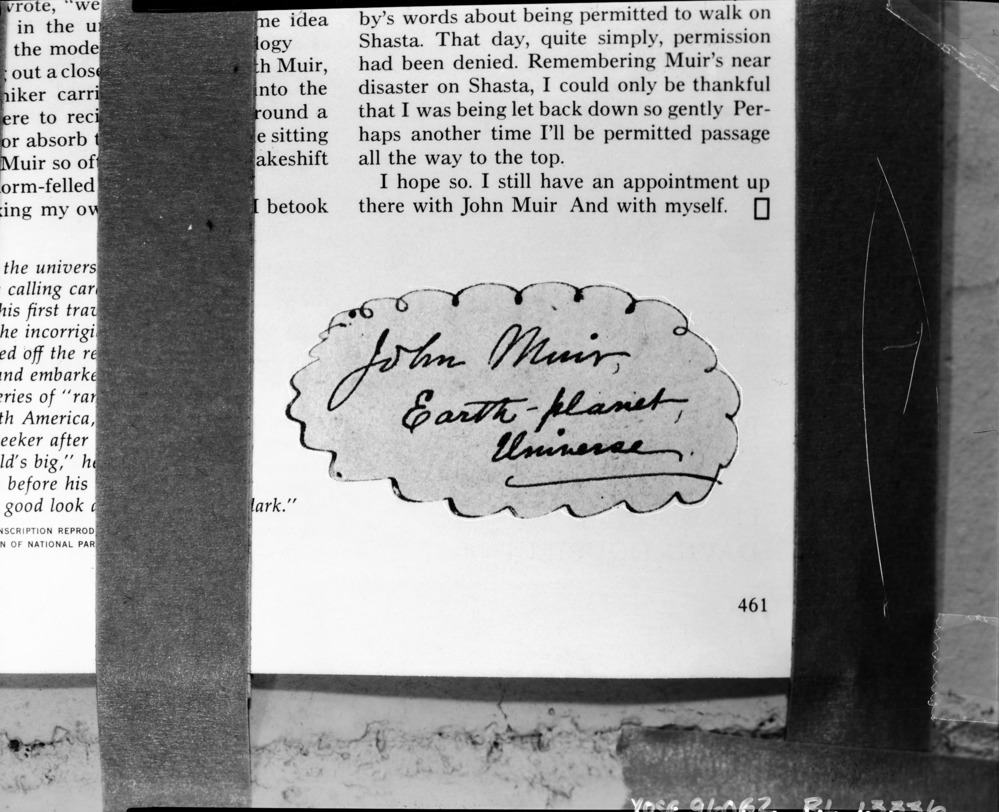 wrote, "we
in the u
the mode
out a close
hiker carri
ere to reci
or absorb t
Muir so of
orm-felled
king my ow
me idea
logy
th Muir,
into the
round a
e sitting
akeshift
I betook
by's words about being permitted to walk on
Shasta. That day, quite simply, permission
had been denied. Remembering Muir's near
disaster on Shasta, I could only be thankful
that I was being let back down so gently Per-
haps another time I'll be permitted passage
all the way to the top.
I hope so. I still have an appointment up
there with John Muir And with myself.
the univers
calling car
his first trav
he incorrigi
ed off the re
and embarke
eries of "ran
th America,
eeker after
ld's big," he
before his
good look a
lark."
NSCRIPTION REPROD
N OF NATIONAL PAR
John Muir,
Earth-planet,
Universe.
461
YOSE 96062 RL 13336